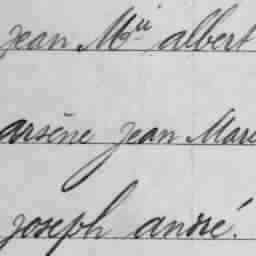 Jean M^ie albert
arsène Jean Marie
Joseph andré.